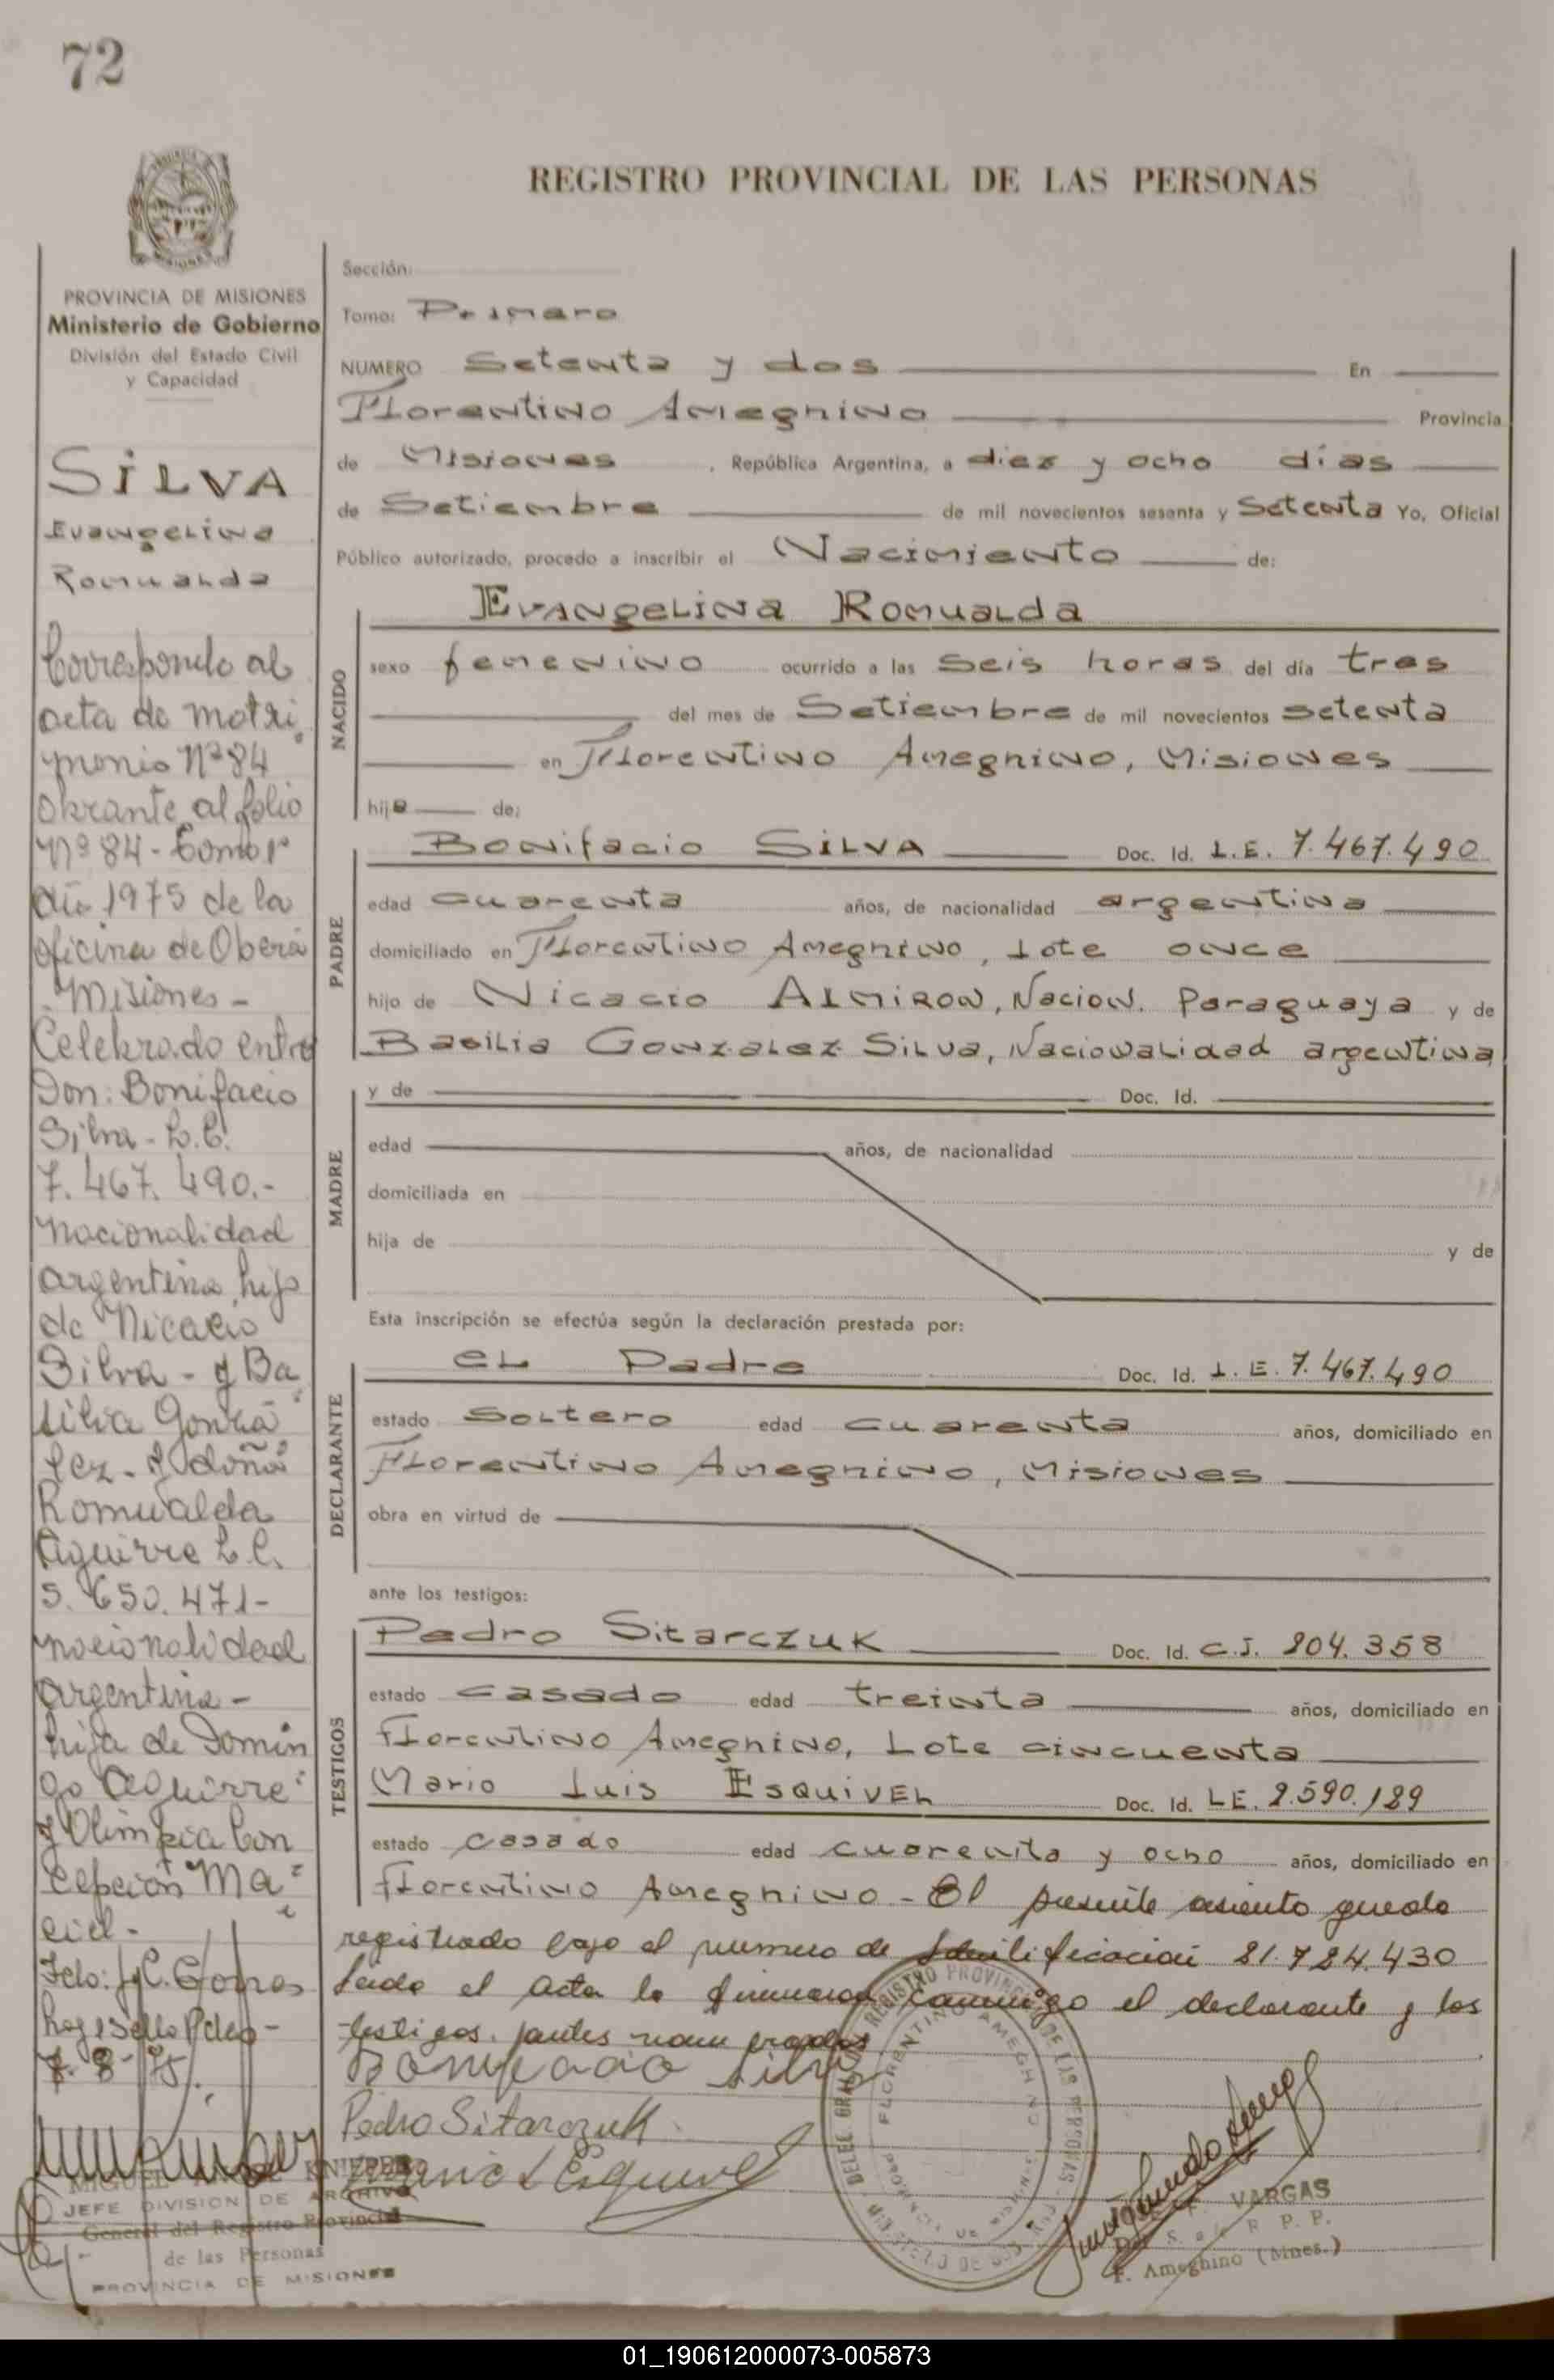 72
REGISTRO PROVINCIAL DE LAS PERSONAS
PROVINCIA DE MISIONES
Ministerio de Gobierno
División del Estado Civil
y Capacidad
SILVA
Evangelina
Romualda
Corresponde al
acta de matri
monio Nº 84
obrante al folio
Nº 84 - Tomo 1º
año 1975 de la
oficina de Oberá
Misiones -
Celebrado entre
Don: Bonifacio
Silva - L.E.
7.467.490.-
nacionalidad
argentina, hijo
de Nicacio
Silva - y Ba
silia Gonzá
lez - y doña
Romualda
Aguirre L.C.
5.650.471-
nacionalidad
argentina -
hija de Domin
go Aguirre
y Olimpia Con
cepción Ma
ciel -
Fdo:
Hay sello Pdeo -
7-8-75.
MIGUEL KNIEPER
JEFE DIVISION DE ARCHIVO
General del Registro Provincial
de las Personas
PROVINCIA DE MISIONES
Sección:
Tomo: Primero
NUMERO Setenta y dos En
Florentino Ameghino Provincia
de Misiones , República Argentina, a diez y ocho días
de Setiembre de mil novecientos sesenta y Setenta Yo, Oficial
Público autorizado, procedo a inscribir el Nacimiento de:
NACIDO
Evangelina Romualda
sexo femenino ocurrido a las Seis horas del día tres
del mes de Setiembre de mil novecientos setenta
en Florentino Ameghino, Misiones
hija de:
PADRE
Bonifacio SILVA Doc. Id. L.E. 7.467.490
edad cuarenta años, de nacionalidad argentina
domiciliado en Florentino Ameghino, Lote once
hijo de Nicacio ALMIRON, Nacion. Paraguaya y de
Basilia Gonzalez Silva, Nacionalidad argentina
MADRE
y de Doc. Id.
edad años, de nacionalidad
domiciliada en
hija de y de
Esta inscripción se efectúa según la declaración prestada por:
DECLARANTE
el Padre Doc. Id. L.E. 7.467.490
estado Soltero edad cuarenta años, domiciliado en
Florentino Ameghino, Misiones
obra en virtud de
ante los testigos:
TESTIGOS
Pedro Sitarczuk Doc. Id. C.I. 204.358
estado casado edad treinta años, domiciliado en
Florentino Ameghino, Lote cincuenta
Mario Luis Esquivel Doc. Id. LE. 2.590.129
estado casado edad cuarenta y ocho años, domiciliado en
Florentino Ameghino - El presente asiento queda
registrado bajo el numero de identificación 21.724.430
Leida el acta la firmaron conmigo el declarante y los
testigos. antes nombrados
Bonifacio Silva
Pedro Sitarczuk
Mario L Esquivel
REGISTRO PROVINCIAL DE LAS PERSONAS
FLORENTINO AMEGHINO
VARGAS
F. Ameghino (Mnes.)
01_190612000073-005873